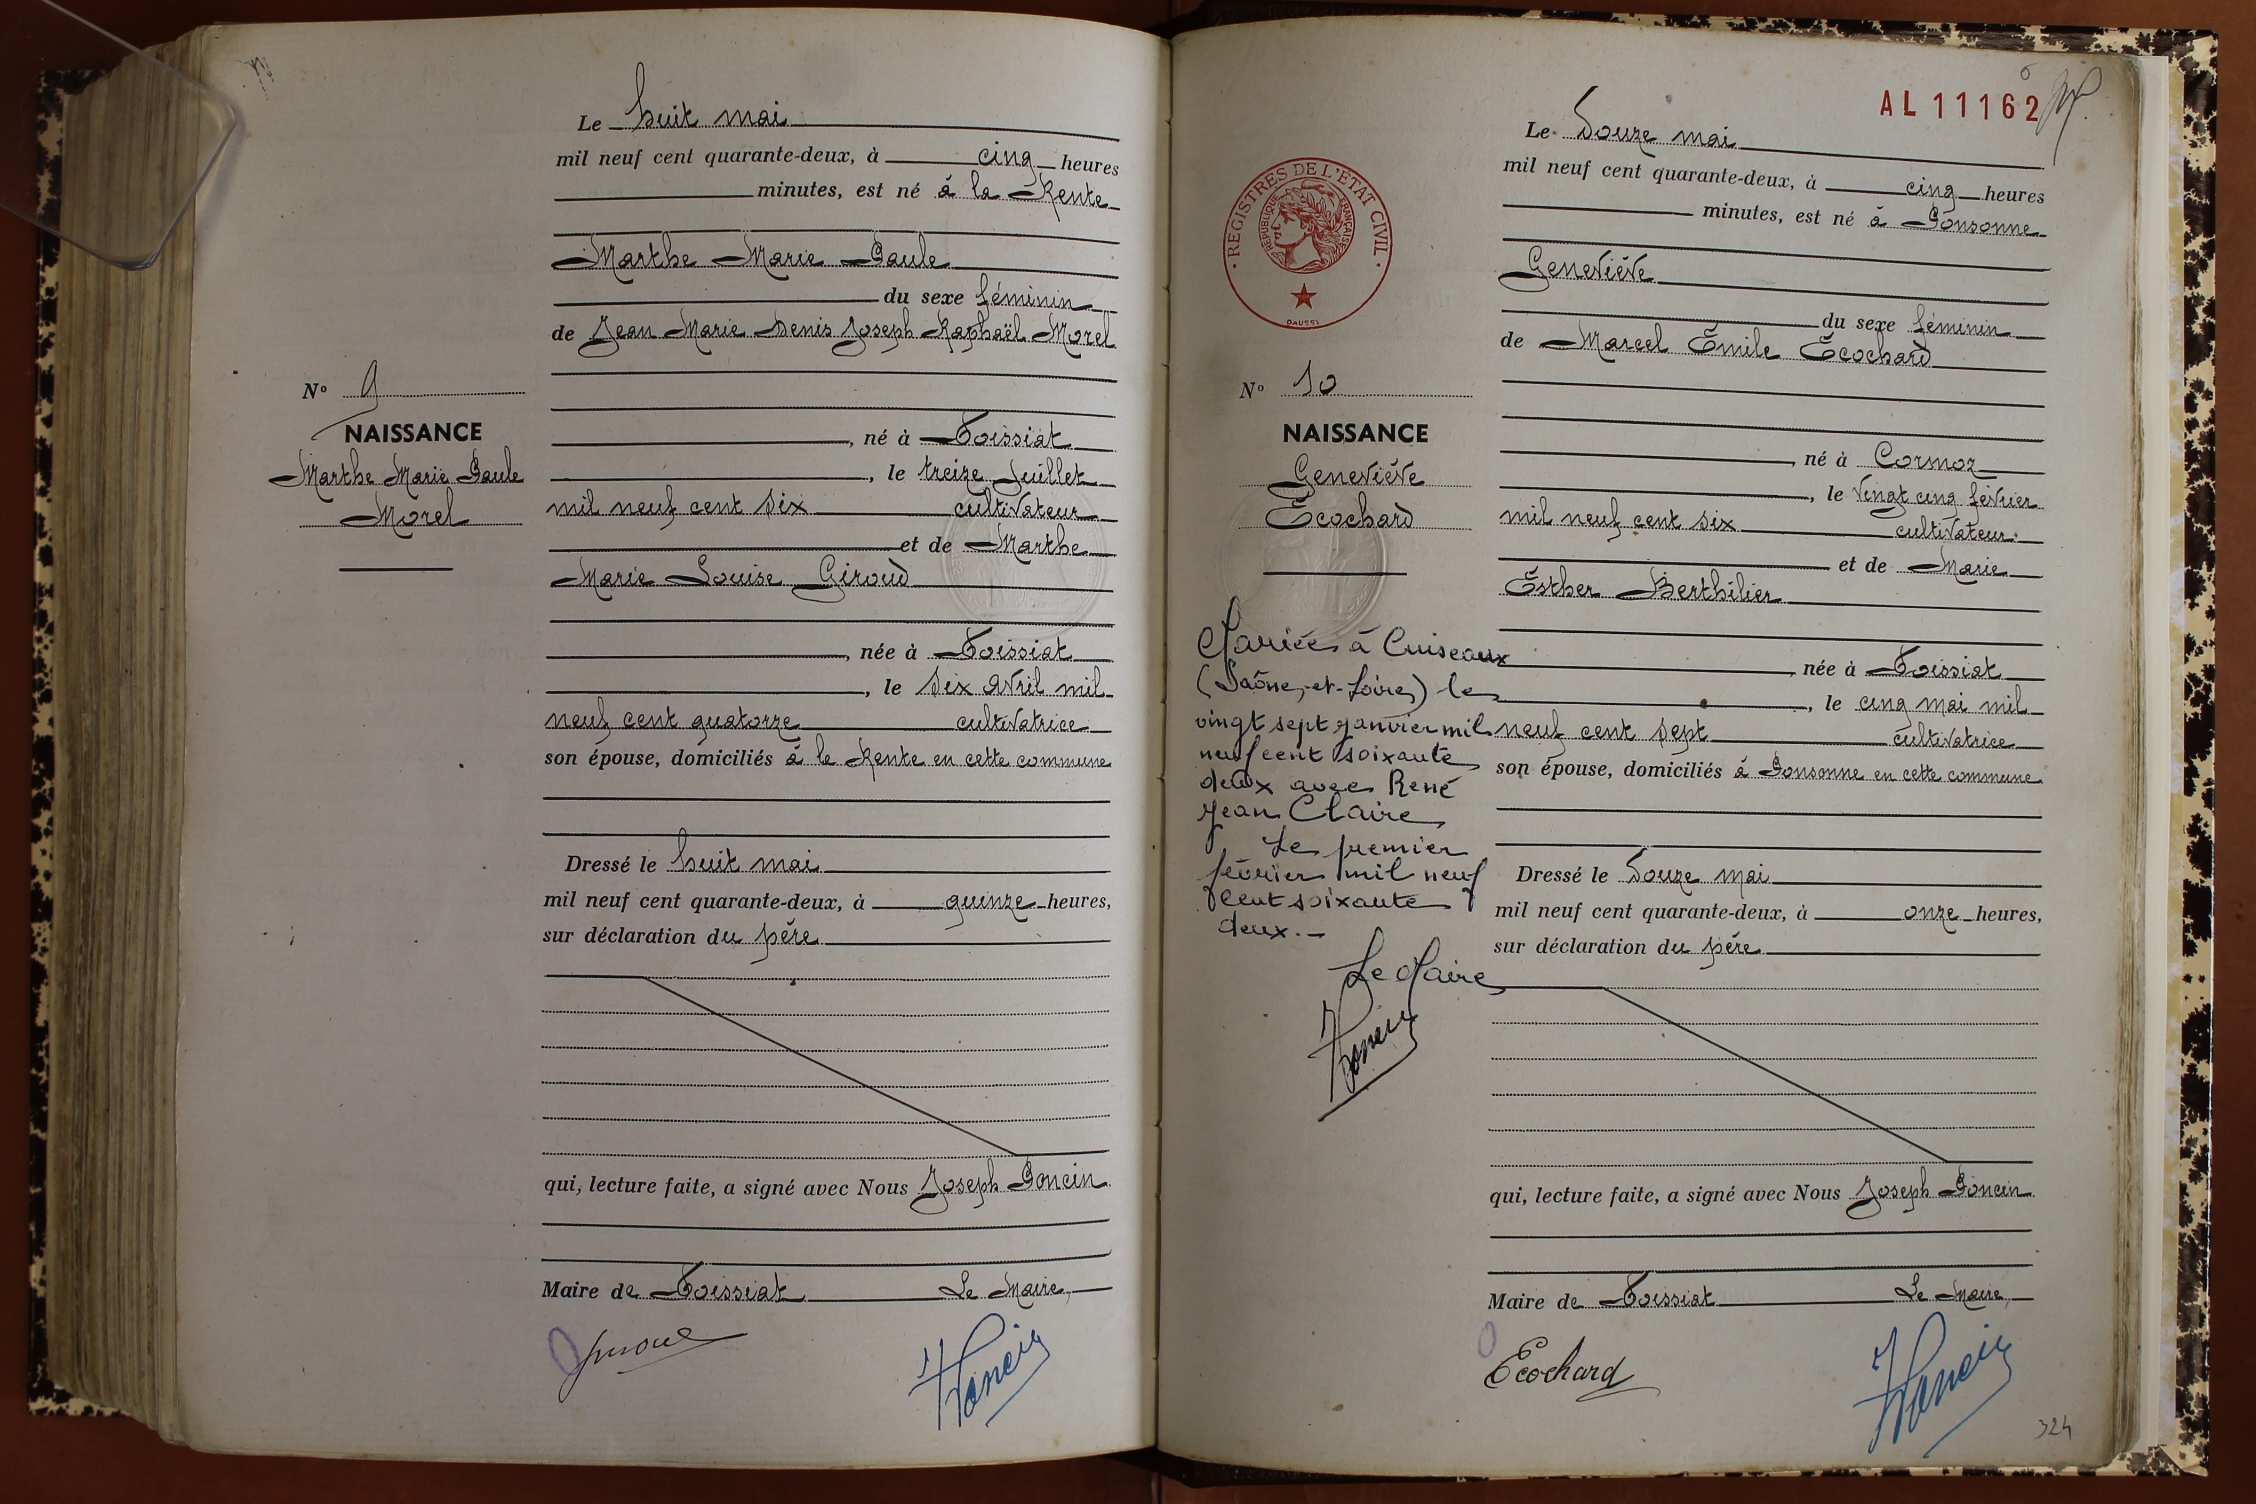 Le huit mai
mil neuf cent quarante-deux, à cinq heures
minutes, est né à la Rente
Marthe Marie Paule
du sexe féminin
de Jean Marie Denis Joseph Raphaël Morel
N° 9
NAISSANCE
Marthe Marie Paule
Morel
, né à Foissiat
, le treize Juillet
mil neuf cent six cultivateur
et de Marthe
Marie Louise Giroud
, née à Foissiat
, le six avril mil
neuf cent quatorze cultivatrice
son épouse, domiciliés à la Rente en cette commune
Dressé le huit mai
mil neuf cent quarante-deux, à quinze heures,
sur déclaration du père
qui, lecture faite, a signé avec Nous Joseph Poncin
Maire de Foissiat Le Maire,
JPoncin
AL 11162
REGISTRES DE L'ETAT CIVIL
REPUBLIQUE FRANÇAISE
DAUSSI
Le Douze mai
mil neuf cent quarante-deux, à cinq heures
minutes, est né à Ponsonne
Geneviève
du sexe féminin
de Marcel Émile Écochard
N° 10
NAISSANCE
Geneviève
Écochard
né à Cormoz
, le vingt cinq février
mil neuf cent six cultivateur
et de Marie
Esther Berthilier
née à Foissiat
, le cinq mai mil
neuf cent sept cultivatrice
son épouse, domiciliés à Ponsonne en cette commune
Mariée à Cuiseaux
(Saône-et-Loire) le
vingt sept janvier mil
neuf cent soixante
deux avec René
Jean Claire
Le premier
février mil neuf
cent soixante
deux.-
Le Maire
JPoncin
Dressé le Douze mai
mil neuf cent quarante-deux, à onze heures,
sur déclaration du père
qui, lecture faite, a signé avec Nous Joseph Poncin
Maire de Foissiat Le Maire,
Ecochard
JPoncin
324